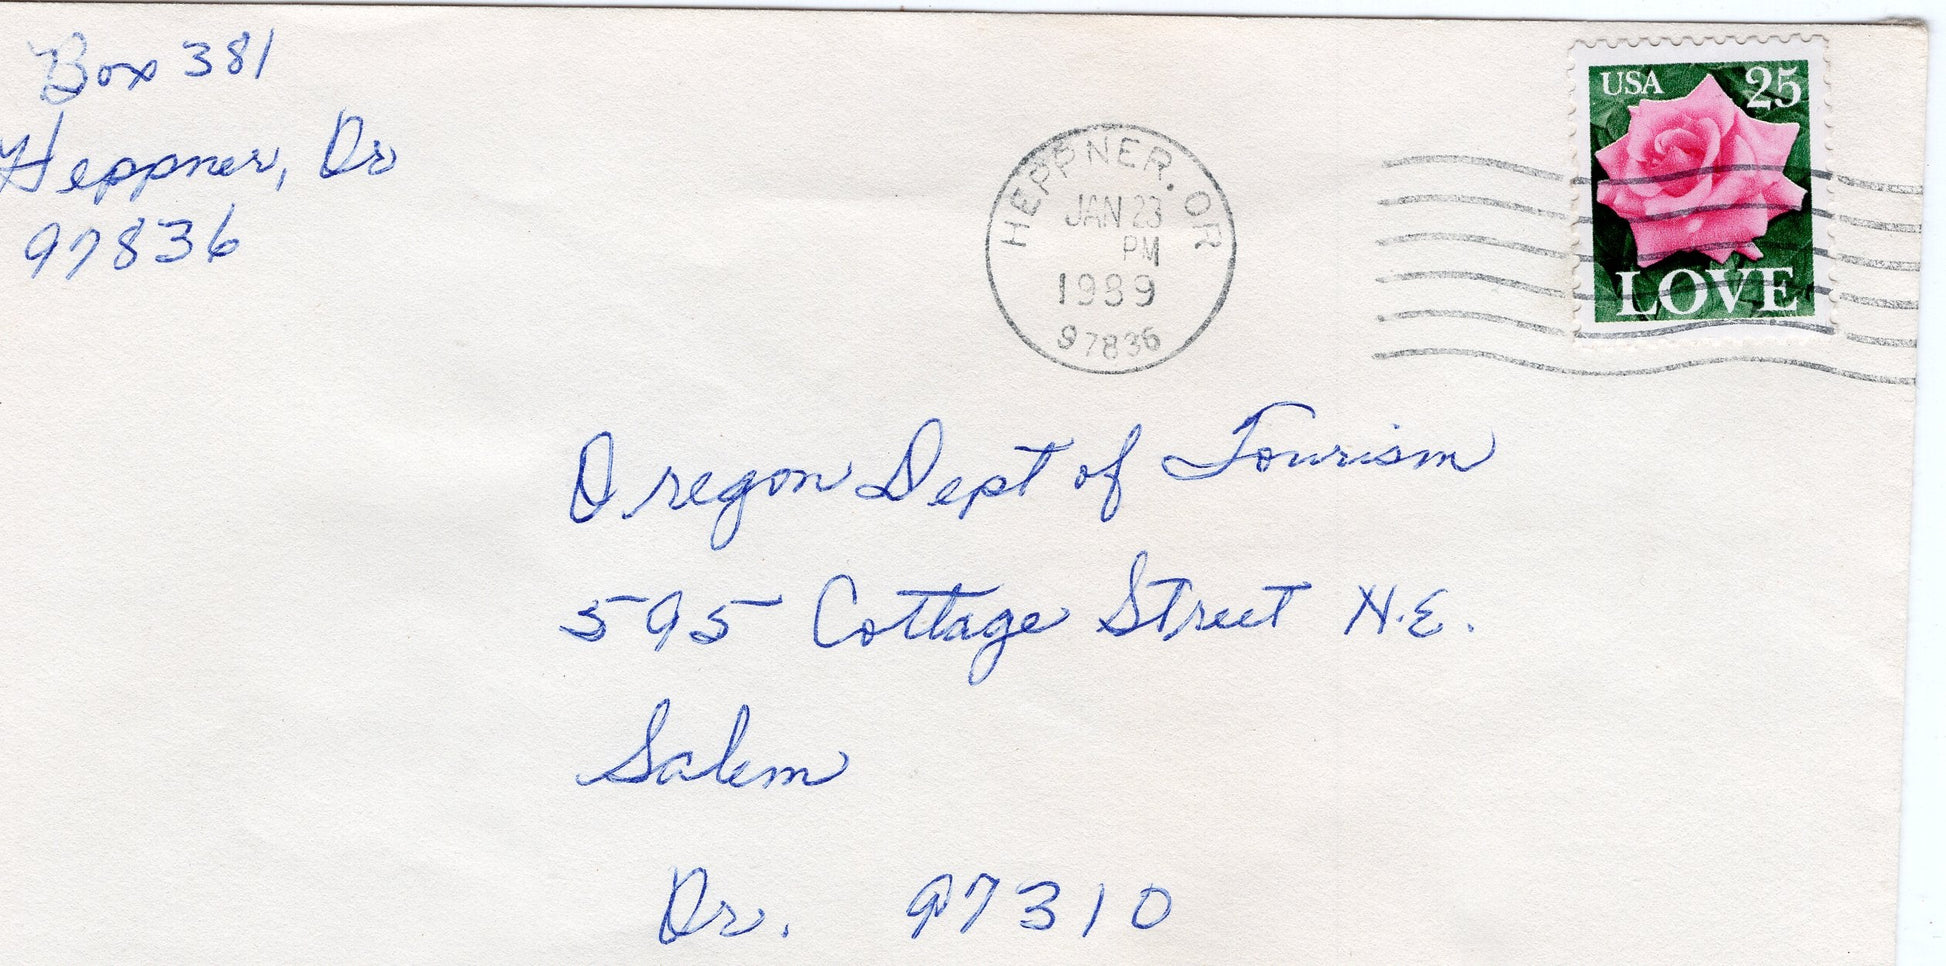 Box 381
Heppner, Or
97836
HEPPNER, OR
JAN 23
PM
1989
97836
USA 25
LOVE
Oregon Dept of Tourism
595 Cottage Street N.E.
Salem
Or. 97310